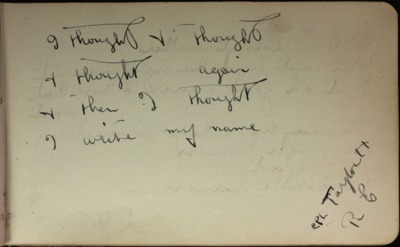 I thought & I thought
& thought again
& then I thought
I write my name
Cpl Taylor
R E